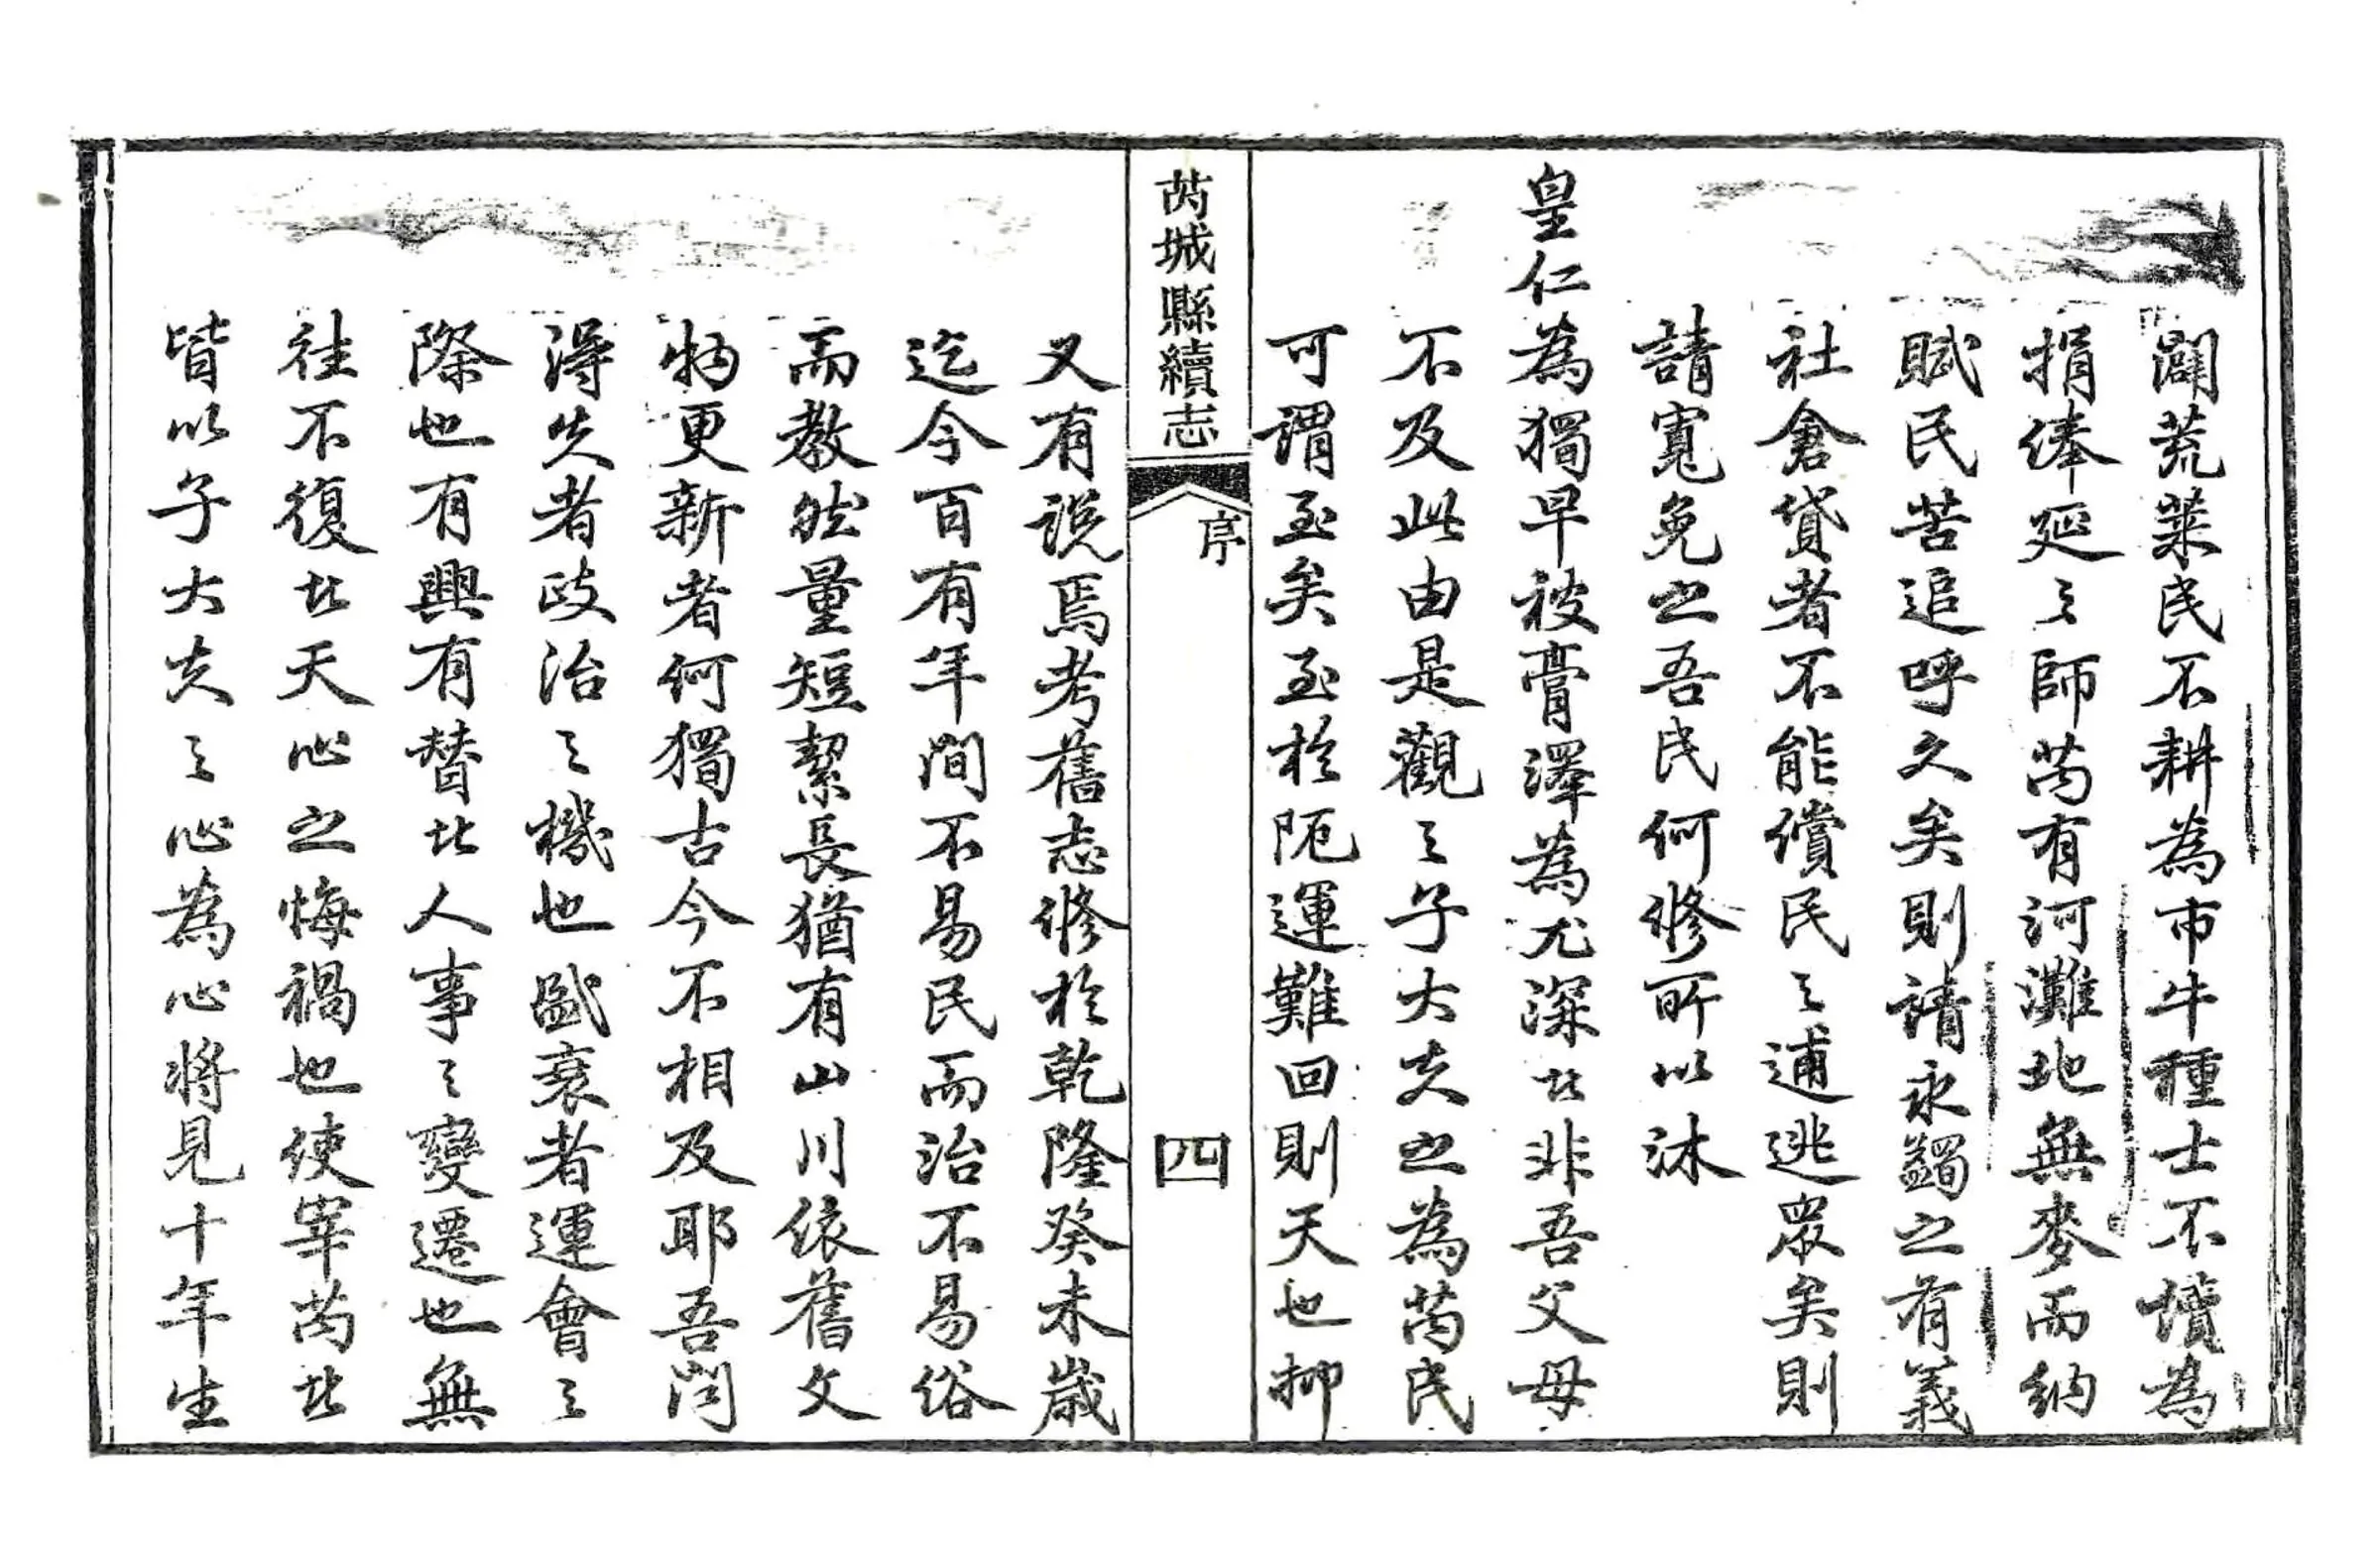 闢荒萊民不耕為市牛種士不讀為
捐俸延之師芮有河灘地無麥而納
賦民苦追呼久矣則請永蠲之有義
社倉貸者不能償民之逋逃眾矣則
請寬免之吾民何修所以沐
皇仁為獨早被膏澤為尤深此非吾父母
不及此由是觀之子大夫之為芮民
可謂至矣至於阨運難回則天也抑
芮城縣續志
序
四
又有說焉考舊志修於乾隆癸未歲
迄今百有年間不易民而治不易俗
而教然量短絜長猶有山川依舊文
物更新者何獨古今不相及耶吾聞
得失者政治之機也盛衰者運會之
際也有興有替此人事之變遷也無
往不復此天心之悔禍也使宰芮者
皆以子大夫之心為心將見十年生